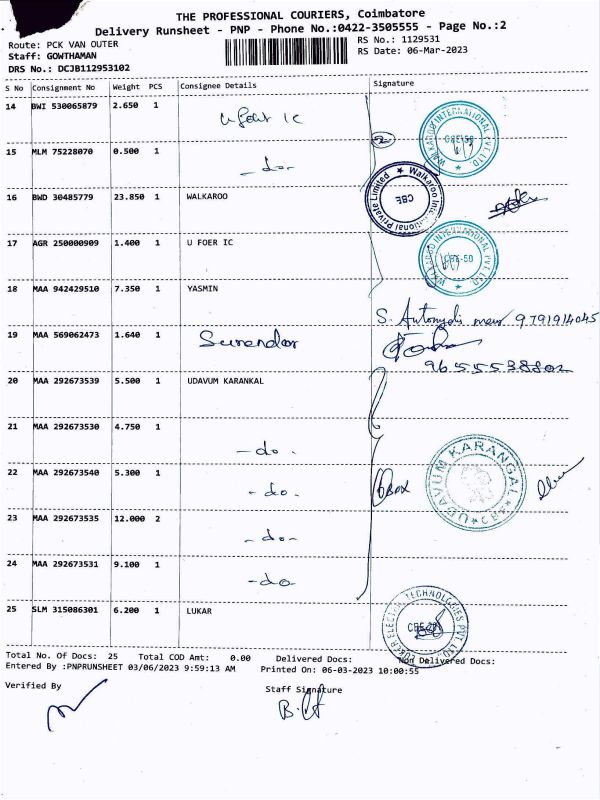 THE PROFESSIONAL COURIERS, Coimbatore
Delivery Runsheet - PNP - Phone No.:0422-3505555 - Page No.:2
Route: PCK VAN OUTER
RS No.: 1129531
Staff: GOWTHAMAN
RS Date: 06-Mar-2023
DRS No.: DCJB112953102
S No Consignment No Weight PCS Consignee Details Signature
14 BWI 530065879 2.650 1
15 MLM 75228070 0.500 1 - do -
16 BWD 30485779 23.850 1 WALKAROO
17 AGR 250000909 1.400 1 U FOER IC
18 MAA 942429510 7.350 1 YASMIN
19 MAA 569062473 1.640 1 Surendar
20 MAA 292673539 5.500 1 UDAVUM KARANKAL
21 MAA 292673530 4.750 1 - do -
22 MAA 292673540 5.300 1 - do -
23 MAA 292673535 12.000 2 - do -
24 MAA 292673531 9.100 1 - do
25 SLM 315086301 6.200 1 LUKAR
2
WALKAROO INTERNATIONAL PVT. LTD.
CBE-50
Walkaroo International Private Limited
CBE
WALKAROO INTERNATIONAL PVT. LTD.
CBE-50
9791914045
9655538802
6 BOX
UDAVUM KARANGAL
TECHNOLOGIES PVT. LTD.
Total No. Of Docs: 25 Total COD Amt: 0.00 Delivered Docs: Non Delivered Docs:
Entered By :PNPRUNSHEET 03/06/2023 9:59:13 AM Printed On: 06-03-2023 10:00:55
Verified By
Staff Signature